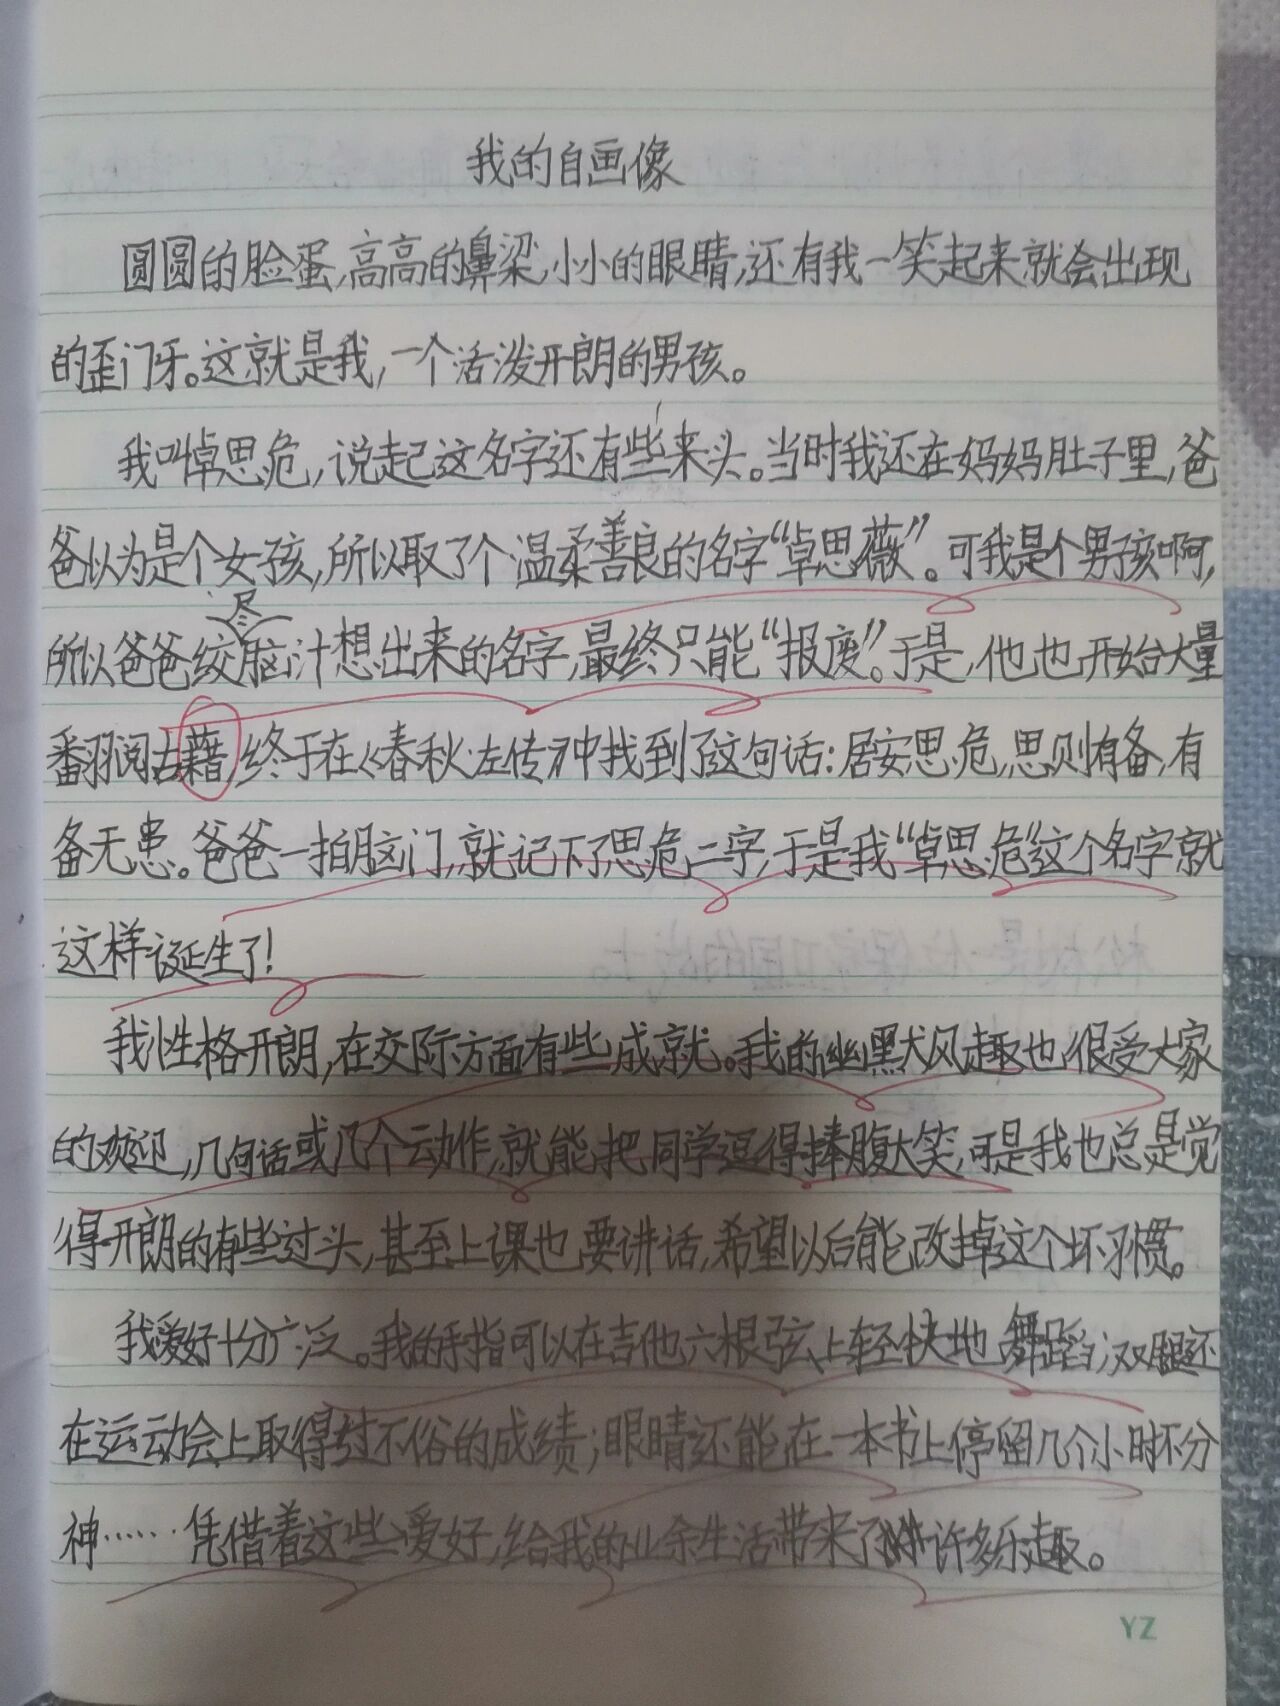 我的自画像
圆圆的脸蛋,高高的鼻梁,小小的眼睛,还有我一笑起来就会出现
的歪门牙。这就是我,一个活泼开朗的男孩。
我叫卓思危,说起这名字还有些来头。当时我还在妈妈肚子里,爸
爸以为是个女孩,所以取了个温柔善良的名字“卓思薇”。可我是个男孩啊,
所以爸爸绞尽脑汁想出来的名字,最终只能“报废”。于是,他也开始大量
翻阅古藉,终于在《春秋·左传》中找到了这句话:居安思危,思则有备,有
备无患。爸爸一拍脑门,就记下了思危二字,于是我“卓思危”这个名字就
这样诞生了!
我性格开朗,在交际方面有些成就。我的幽默风趣也很受大家
的欢迎,几句话或几个动作,就能把同学逗得捧腹大笑,可是我也总是觉
得开朗的有些过头,甚至上课也要讲话,希望以后能改掉这个坏习惯。
我爱好十分广泛。我的手指可以在吉他六根弦上轻快地舞蹈;双腿还
在运动会上取得过不俗的成绩;眼睛还能在一本书上停留几个小时不分
神……凭借着这些爱好,给我的业余生活带来了许多乐趣。
YZ